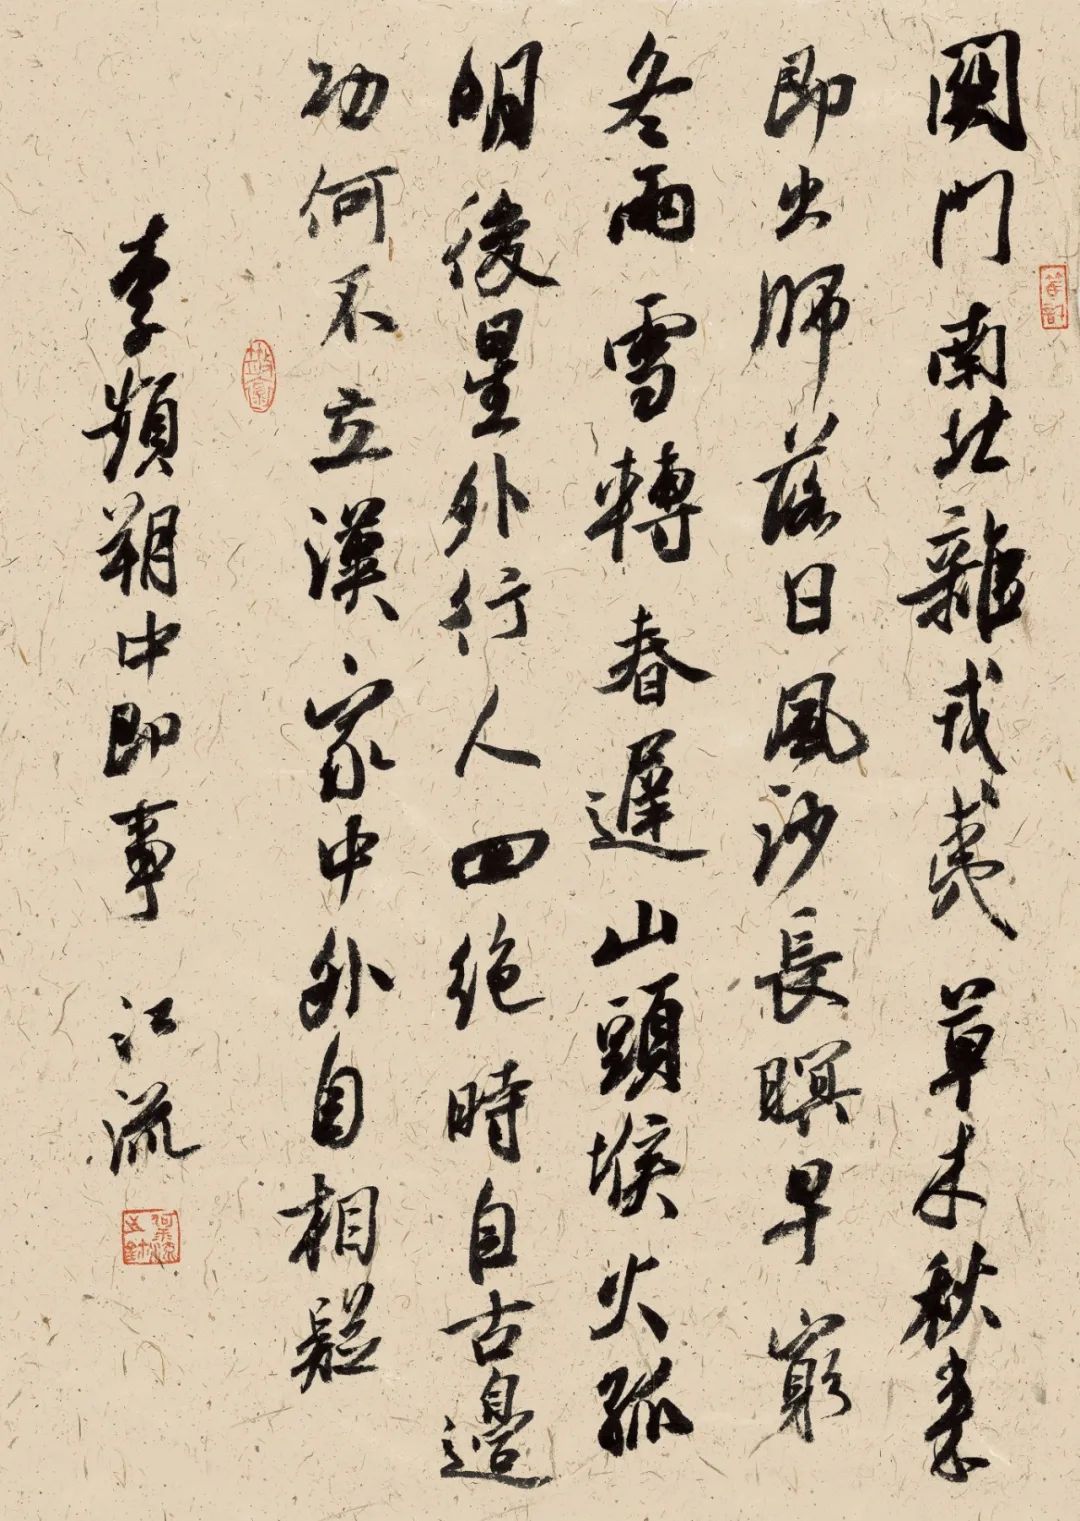 關門南北雜戎夷草木秋來
即出師落日風沙長暝早窮
冬雨雪轉春遲山頭堠火孤
明後星外行人四絕時自古邊
功何不立漢家中外自相疑
李頻朔中即事 江流